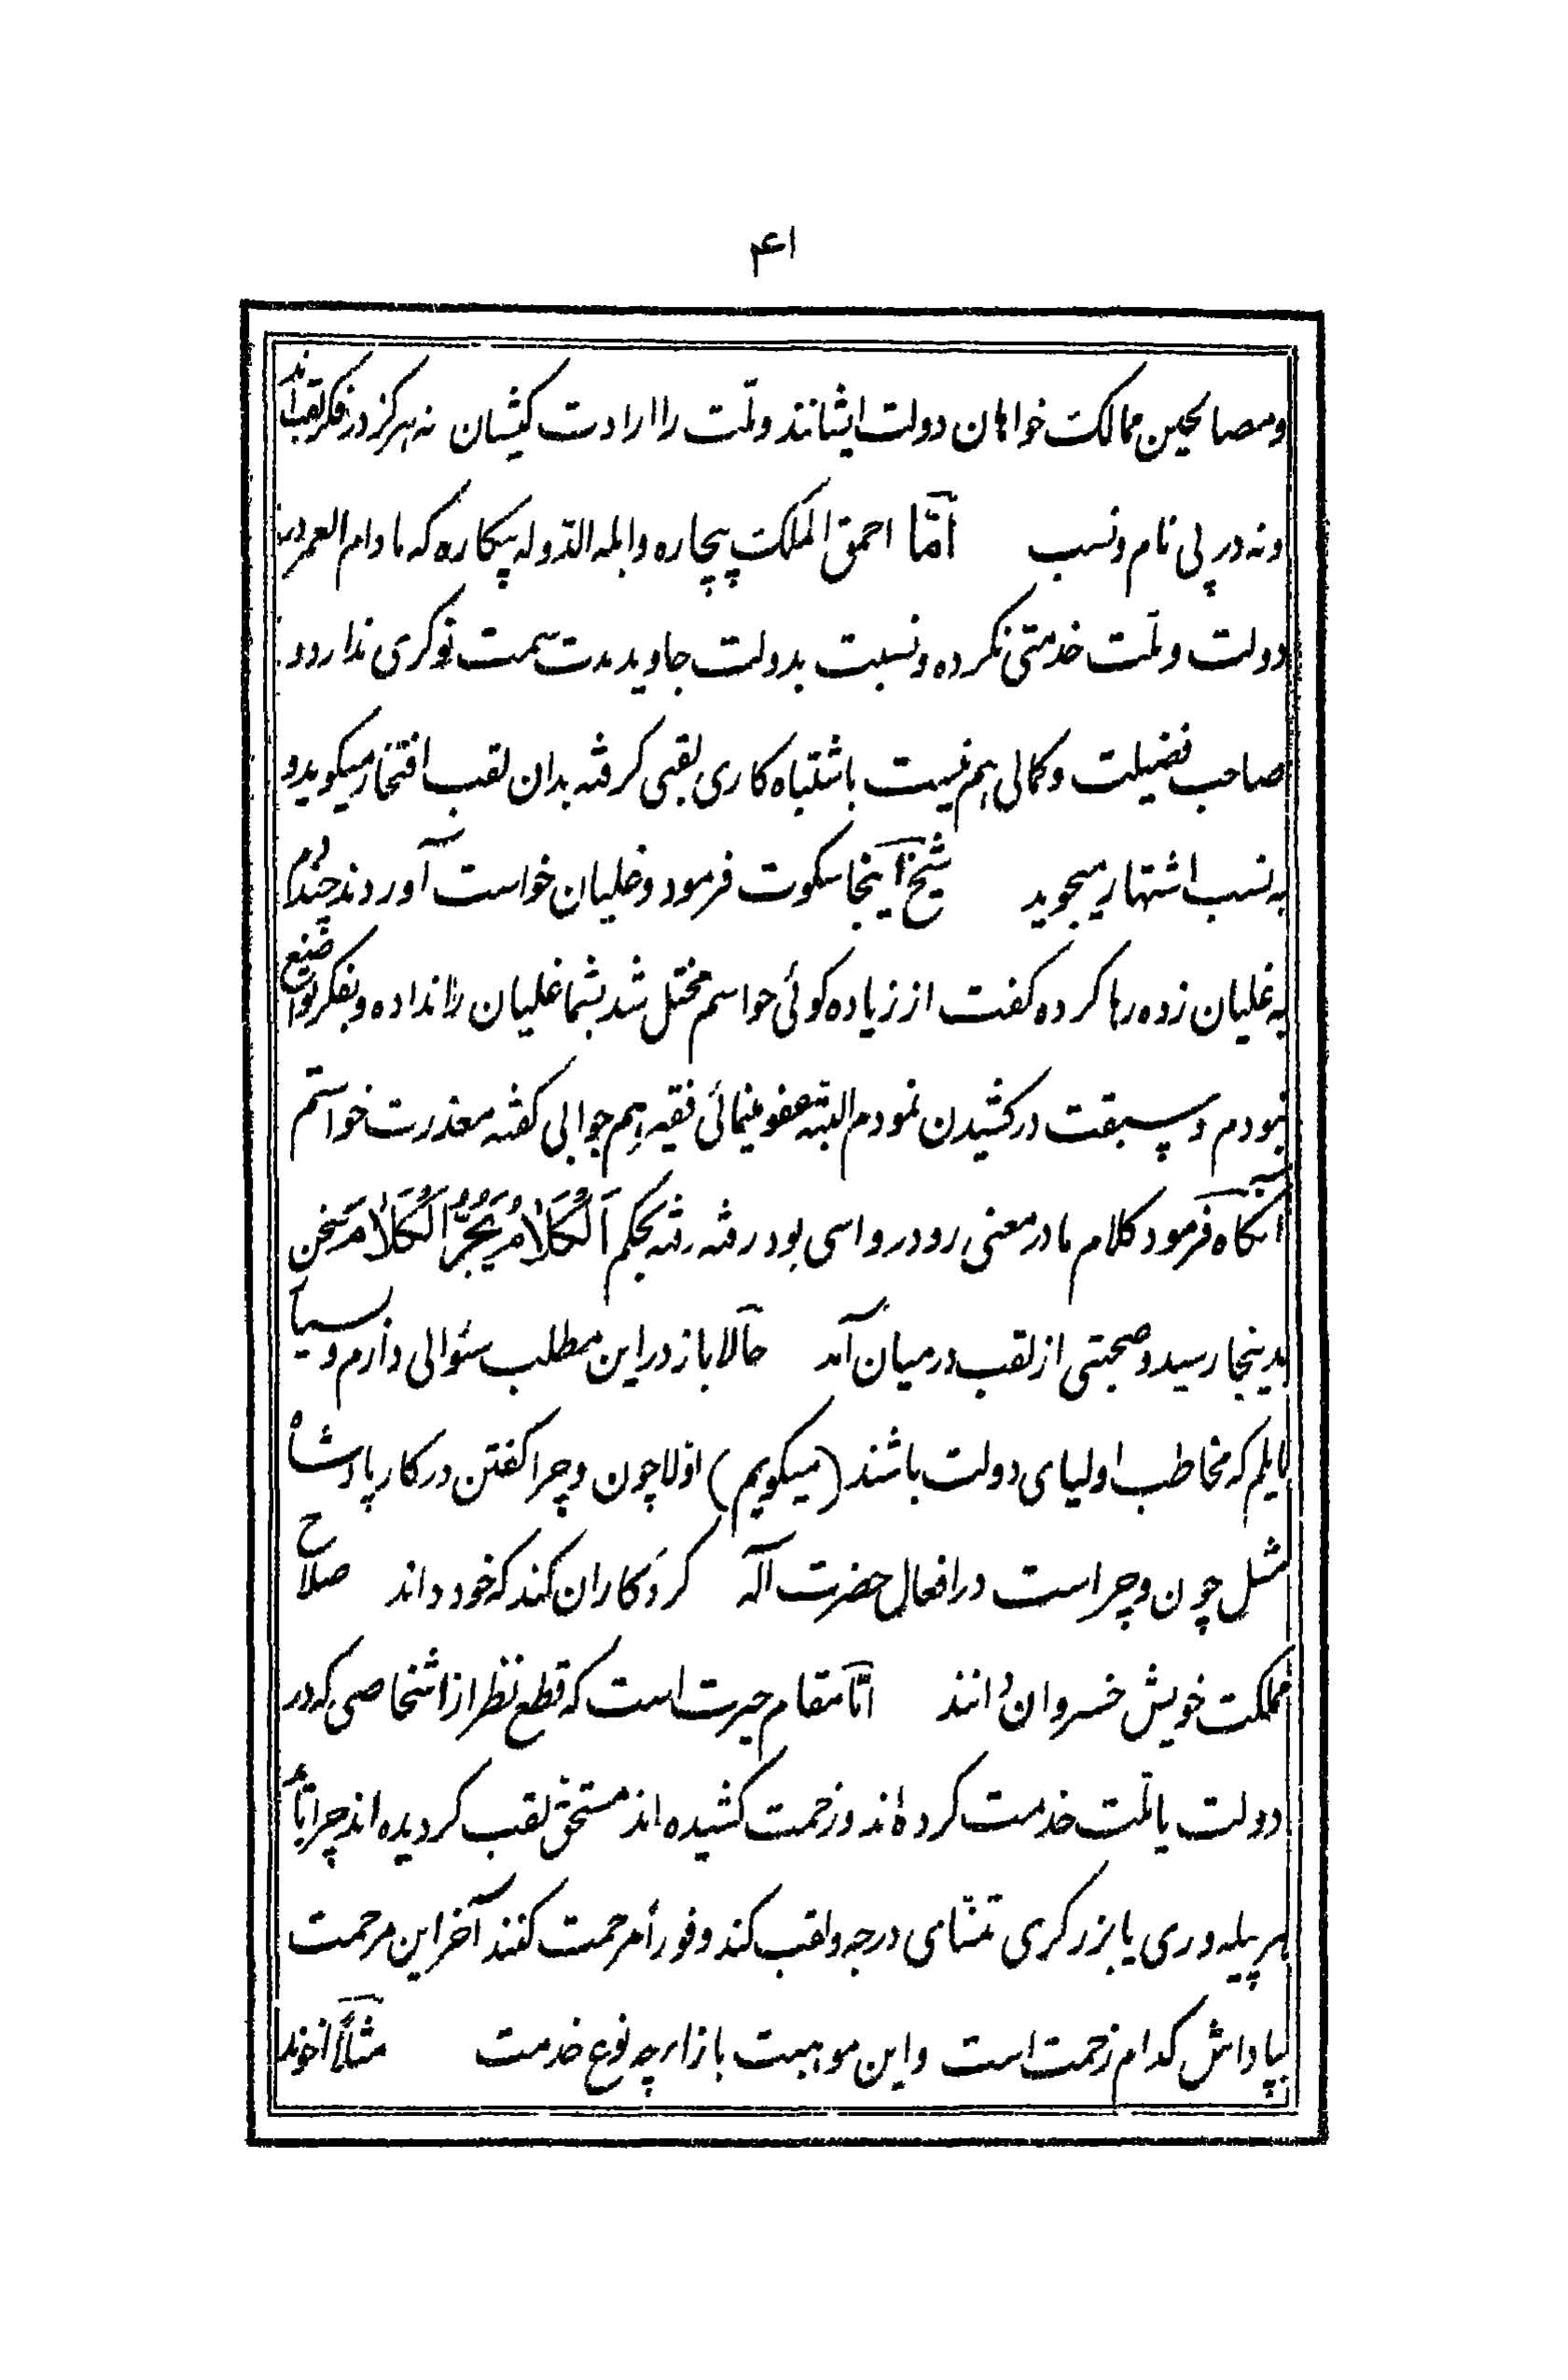 ۴۱
ومصالحین ممالک خواهان دولت ایشانند وملّت را ارادت کیشان نه هرکز در فکر لقب اند
ونه در پی نام ونسب امّا احمق الملک بیچاره وابله الدّوله بیکاره که مادام العمر در
دولت وملّت خدمتی نکرده ونسبت بدولت جاوید مدت سمت نوکری ندارد و
صاحب فضیلت وکمالی هم نیست باشتباه کاری لقبی کرفته بدان لقب افتخار میکوید و
به نسب اشتهار میجوید شیخ اینجا سکوت فرمود وغلیان خواست آوردند چند دم
به غلیان زده رها کرده کفت از زیاده کوئی حواسم مختل شد بشما غلیان را نداده وبفکر تواضع
نبودم و سبقت در کشیدن نمودم البته عفو مینمائی فقیر هم جوابی کفته معذرت خواستم
آنکاه فرمود کلام ما در معنی رودرواسی بود رفته رفته بحکم اَلْکَلامُ یَجُرُّ الْکَلامَ سخن
بدینجا رسید و صحبتی از لقب در میان آمد حالا باز در این مطلب سئوالی دارم و بسیا
مایلم که مخاطب اولیای دولت باشند (میکویم) اوّلا چون وچرا کفتن در کار پادشاه
مثل چون وچراست در افعال حضرت اله کردکاران کند که خود داند صلاح
مملکت خویش خسروان دانند امّا مقام حیرت است که قطع نظر از اشخاصی که در
دولت یا ملّت خدمت کرده‌اند وزحمت کشیده اند مستحقّ لقب کردیده اند چرا باید
هر پیله وری یا بزرکری تمنّای درجه ولقب کند وفوراً مرحمت کنند آخر این مرحمت
بپاداش کدام زحمت است واین موهبت بازاء چه نوع خدمت مثلاً اخوند